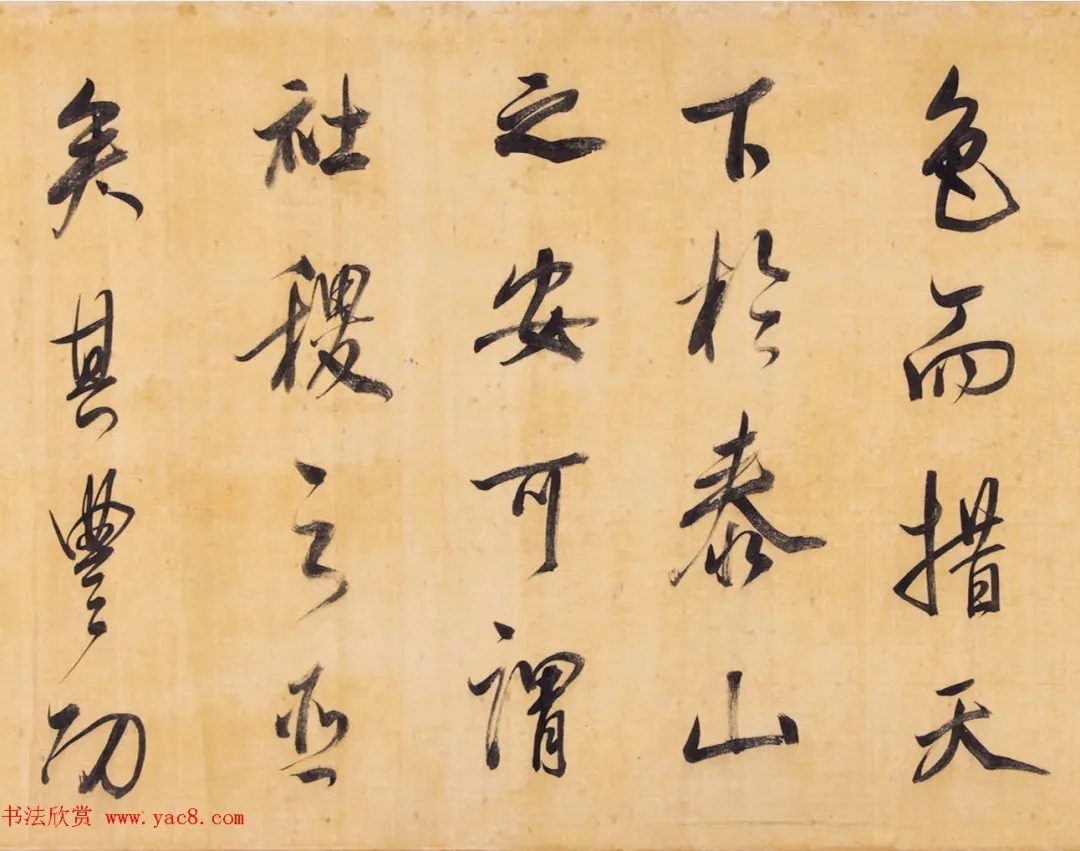 色而措天
下於泰山
之安可謂
社稷之臣
矣其豐功
书法欣赏 www.yac8.com